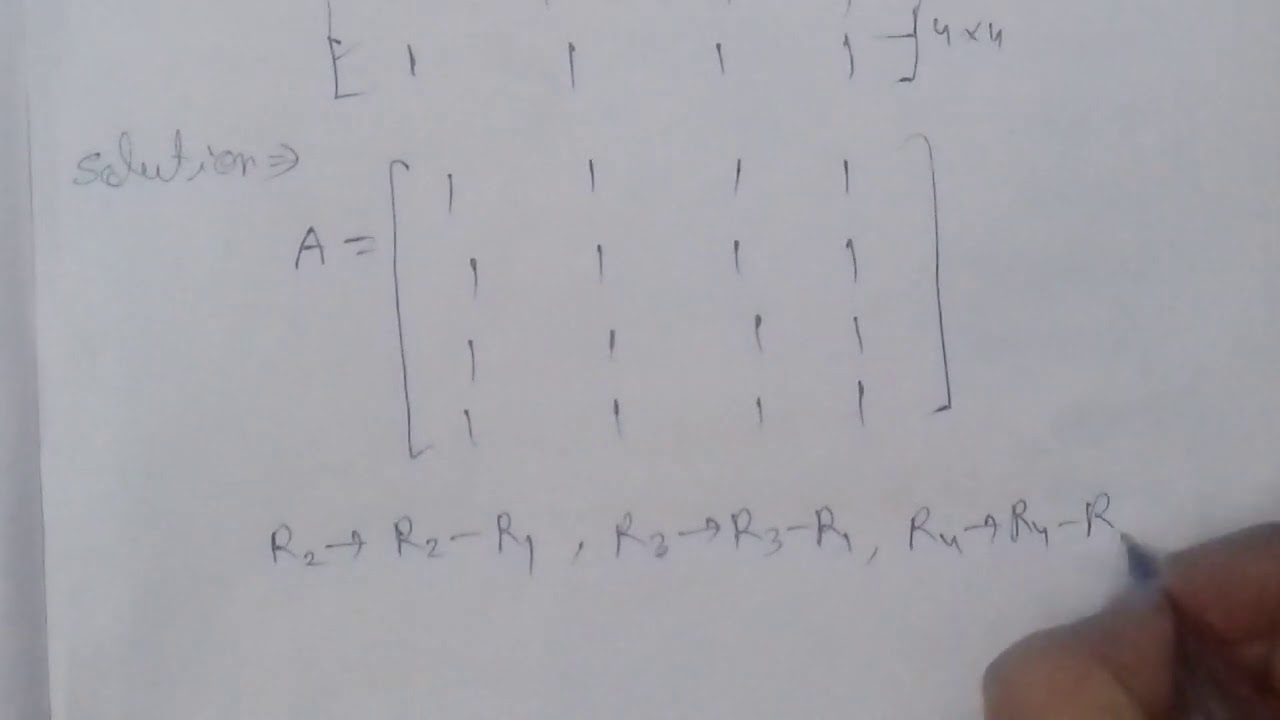 [ 1 1 1 1 ] 4×4
Solution ⇒
1 1 1 1
A = [ 1 1 1 1 ]
1 1 1 1
1 1 1 1
R₂ → R₂ − R₁ , R₃ → R₃ − R₁ , R₄ → R₄ − R